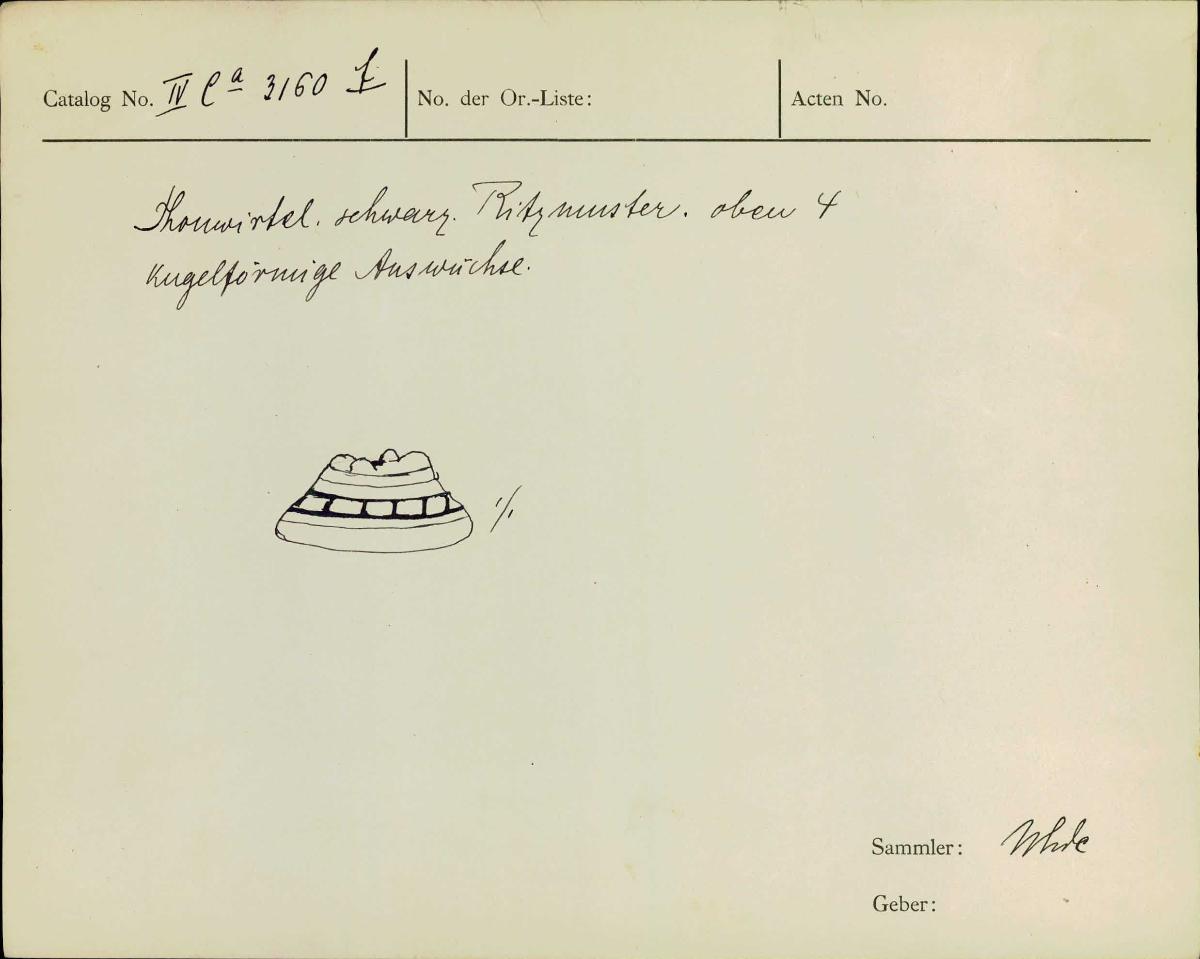 Catalog No. IV Ca 3160 f
No. der Or.-Liste:
Acten No.
Thonwirtel. schwarz. Ritzmuster. oben 4
kugelförmige Auswüchse.
1/1
Sammler: Uhde
Geber: